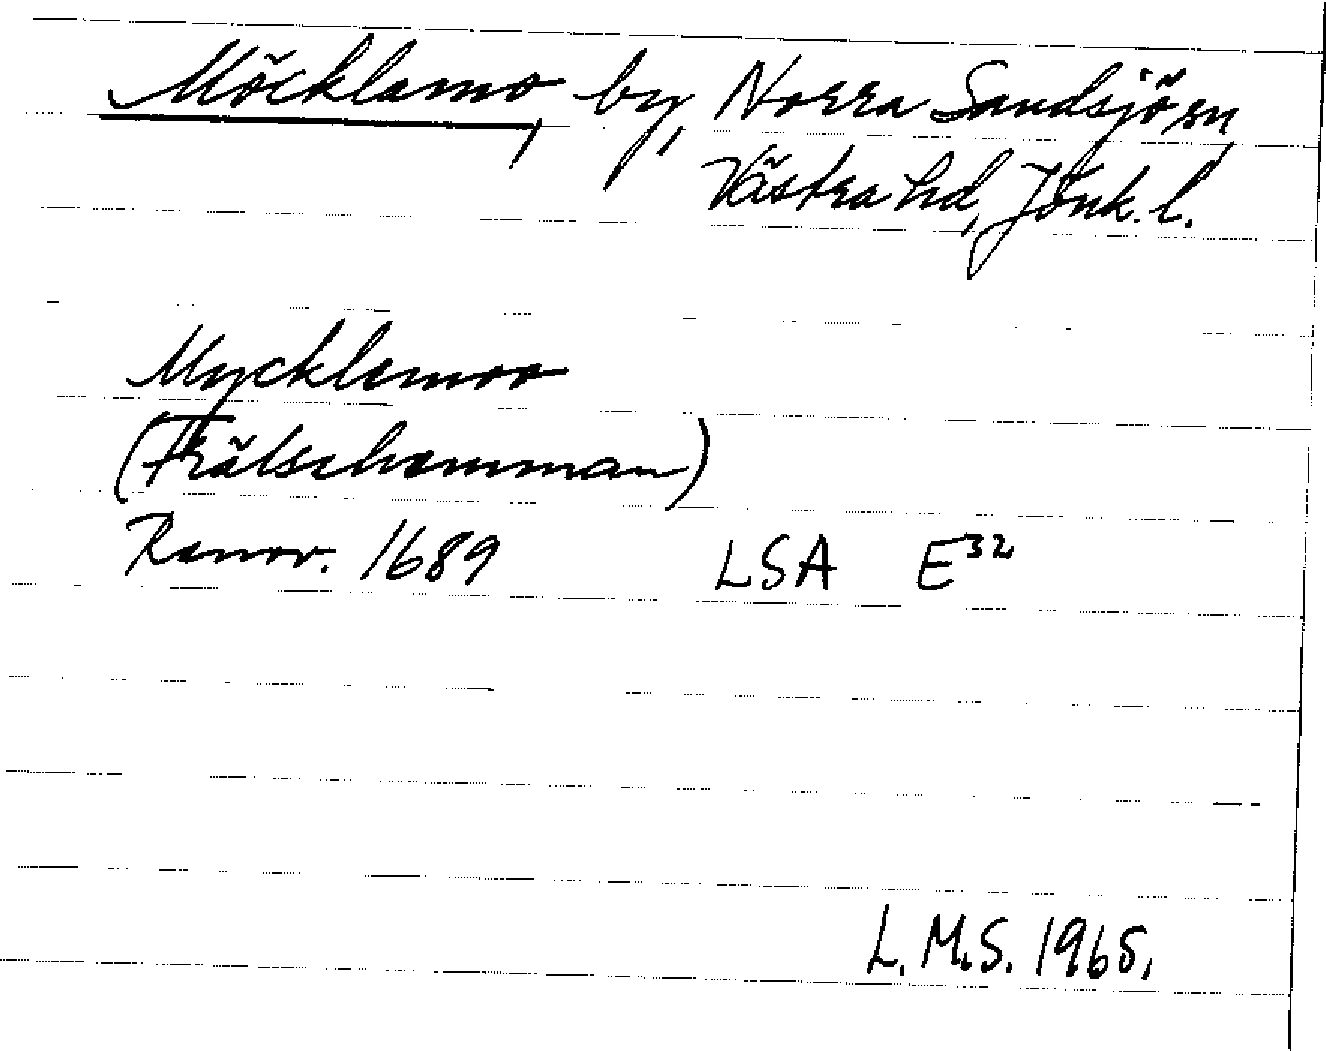 Möcklamo, by, Norra Sandsjö sn,
Västra hd, Jönk. l.
Mycklemoo
(Frälsehemman)
Renov. 1689 LSA E³²
L.M.S. 1965.